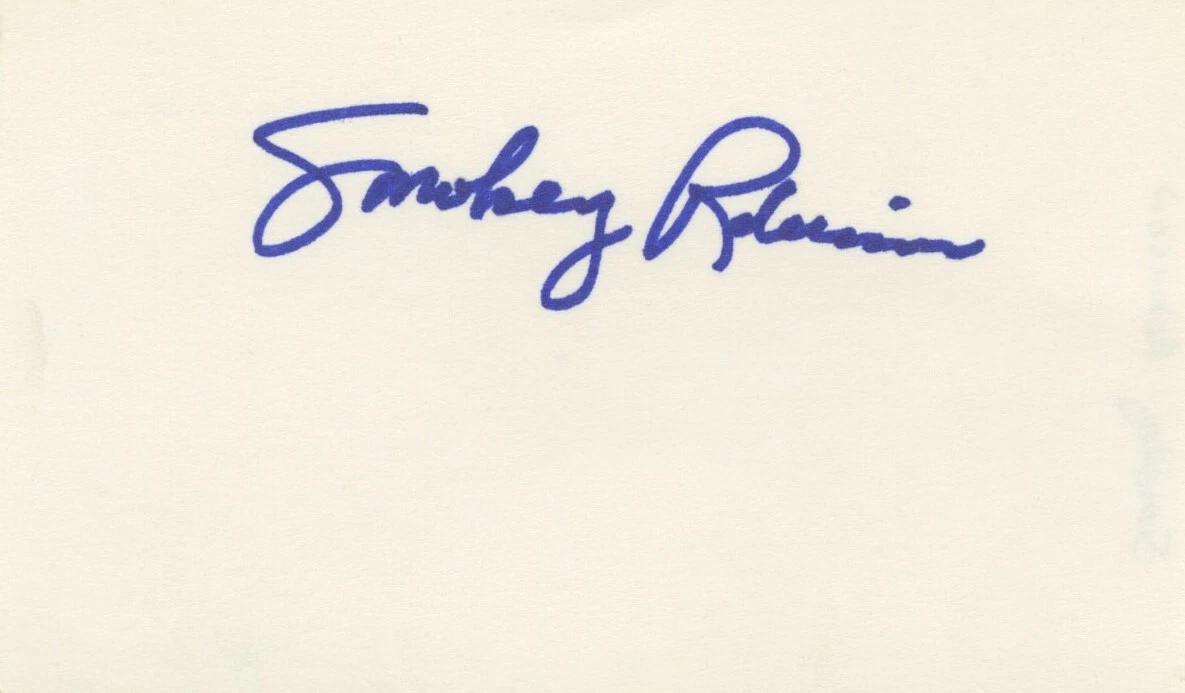 Smokey Robinson